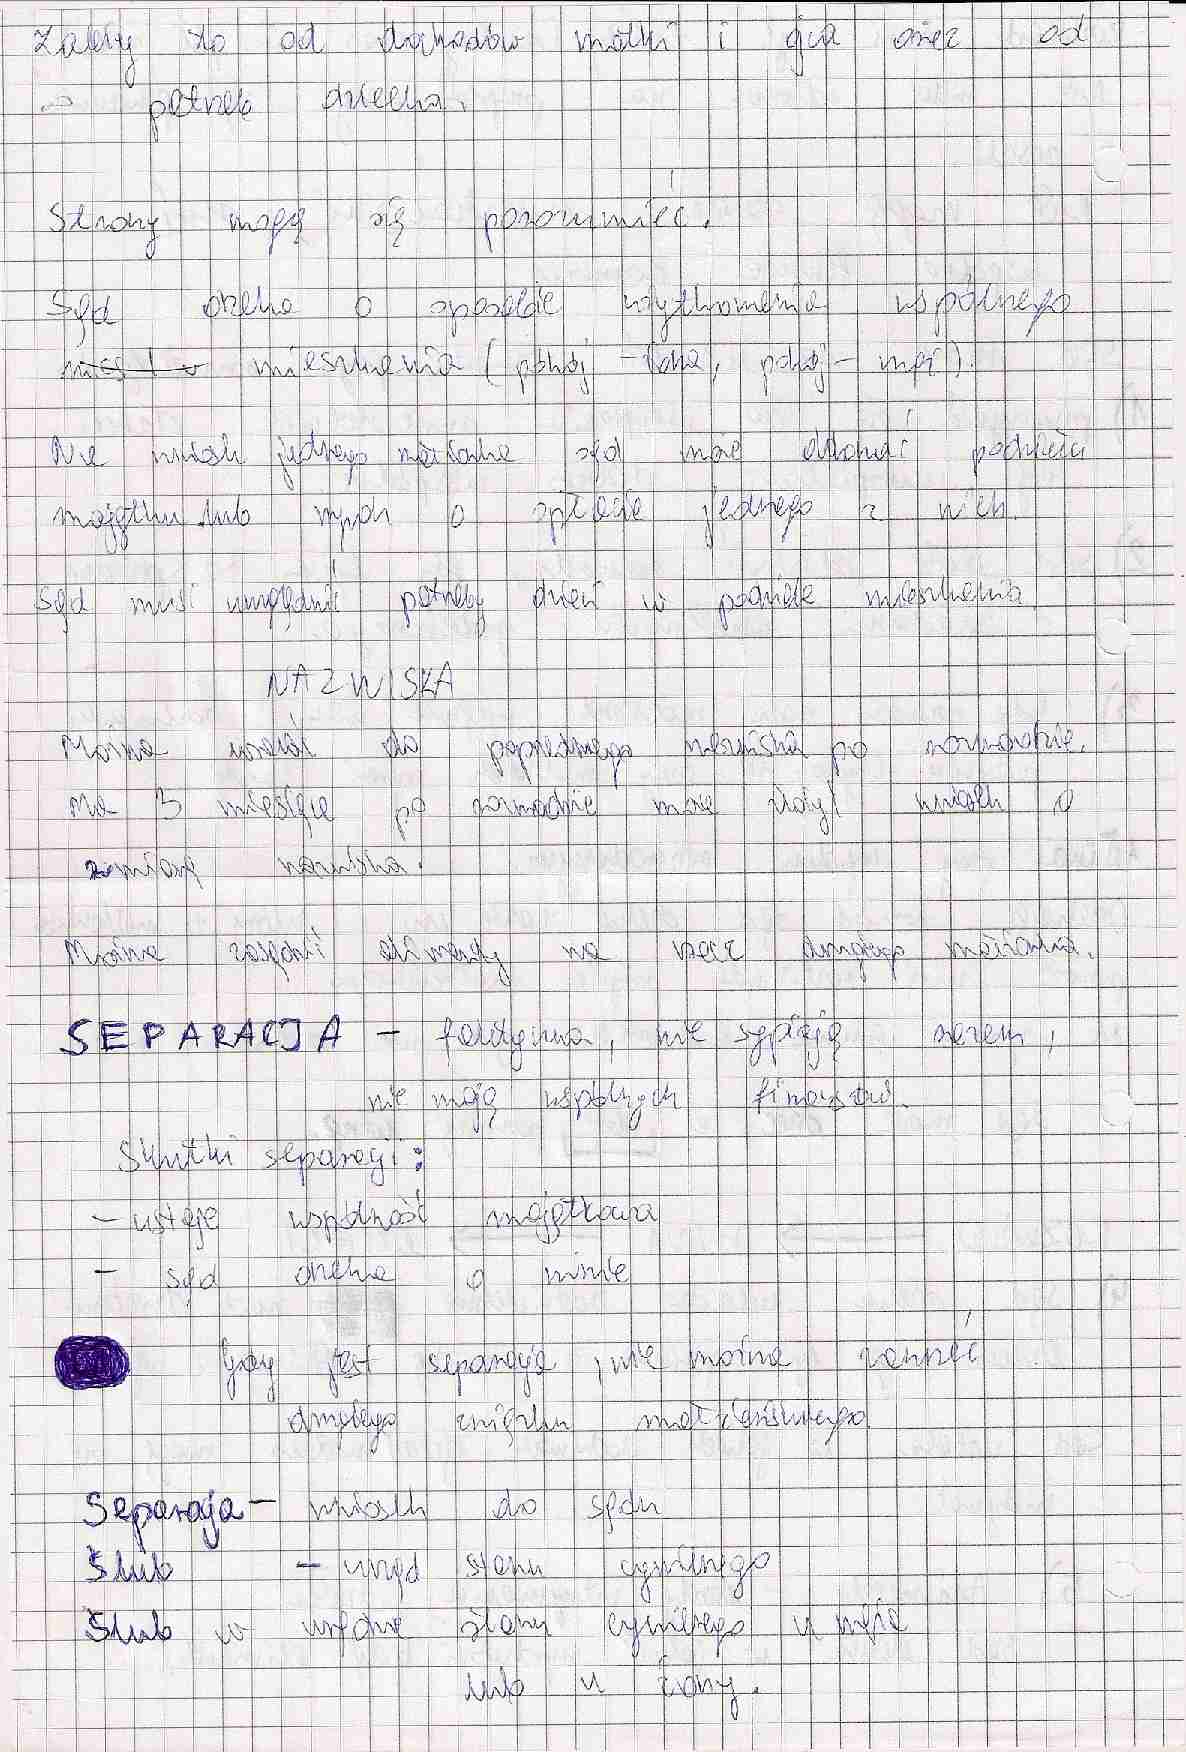 Zależy to od dochodów matki i ojca oraz od
potrzeb dziecka.
Strony mogą się porozumieć.
Sąd orzeka o sposobie użytkowania wspólnego
mieszkania (pokój - żona, pokój - mąż).
Na wniosek jednego małżonka sąd może dokonać podziału
majątku lub wyrok o spłacie jednego z nich.
Sąd musi uwzględnić potrzeby dzieci w podziale mieszkania.
NAZWISKA
Można wrócić do poprzedniego nazwiska po rozwodzie.
Ma 3 miesiące po rozwodzie może złożyć wniosek o
zmianę nazwiska.
Można zasądzić alimenty na rzecz drugiego małżonka.
SEPARACJA - faktyczna, nie sypiają razem,
nie mają wspólnych finansów.
Skutki separacji:
- ustaje wspólność majątkowa
- sąd orzeka o winie
Gdy jest separacja, nie można zawrzeć
drugiego związku małżeńskiego
Separacja - wniosek do sądu
Ślub - urząd stanu cywilnego
Ślub w urzędzie stanu cywilnego u męża
lub u żony.